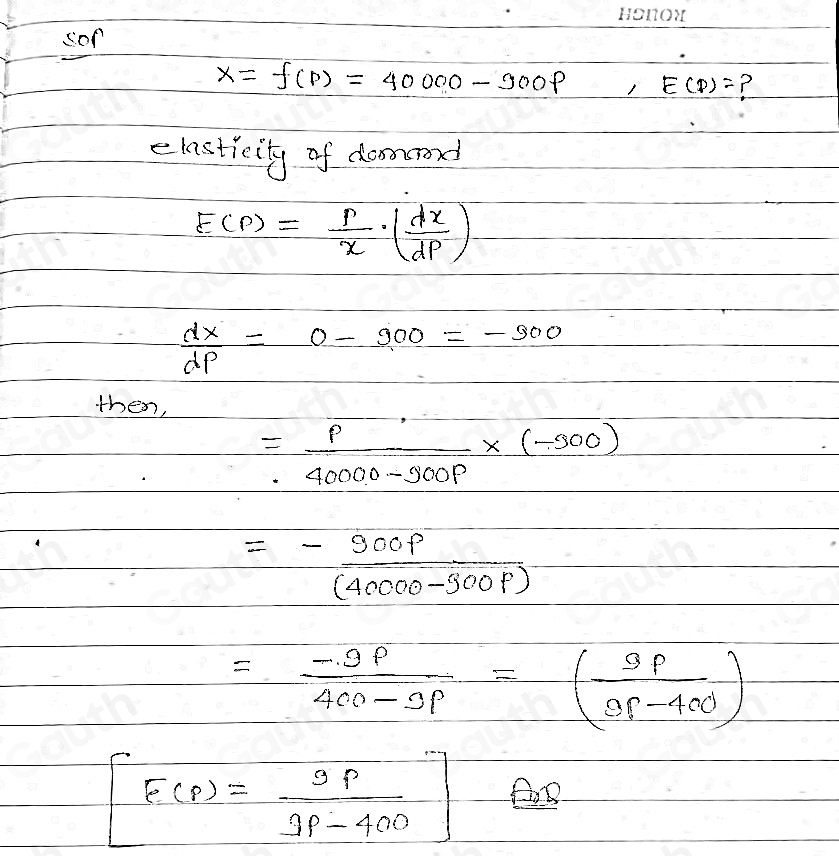 ROUGH
Sol
x = f(P) = 40000 - 900P , E(P) = ?
elasticity of demand
E(P) = P/x · (dx/dP)
dx/dP = 0 - 900 = -900
then,
= P/(40000 - 900P) × (-900)
= - 900P/(40000 - 900P)
= -9P/(400 - 9P) = (9P/(9P - 400))
[E(P) = 9P/(9P - 400)] Ans